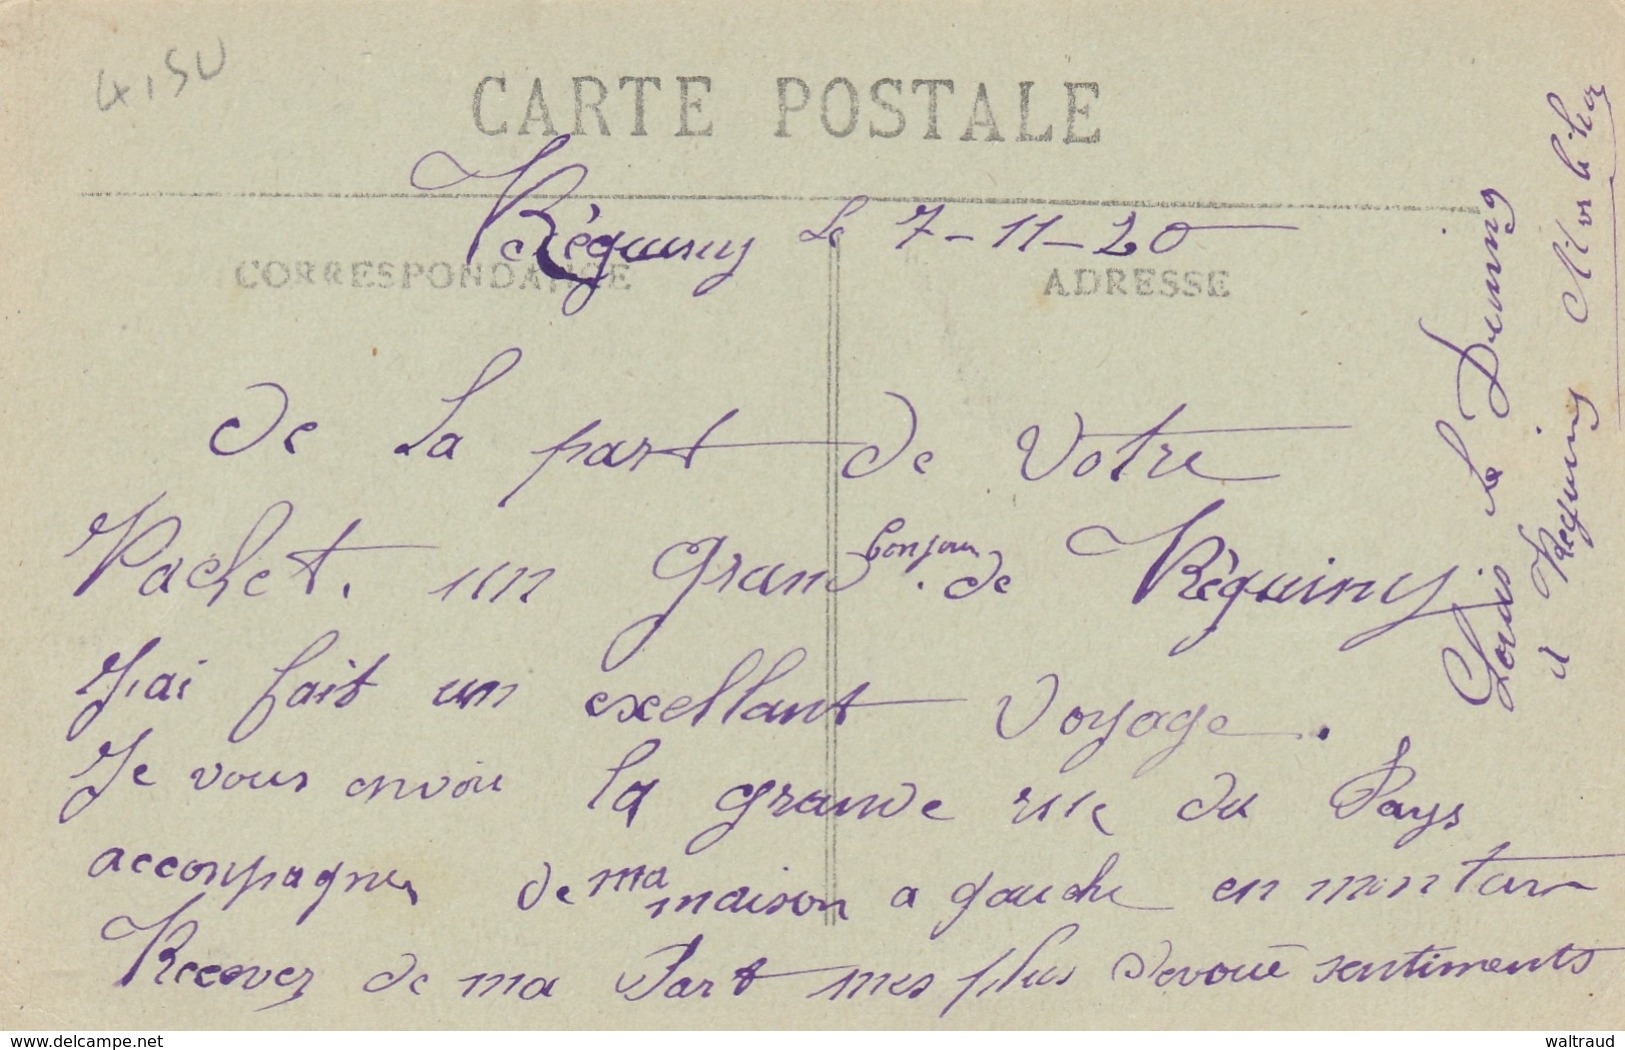 4,50
CARTE POSTALE
Réguiny le 7-11-20
CORRESPONDANCE
ADRESSE
de la part de Votre
Pachet. un grand bonjour. de Réguiny.
J'ai fait un exellant Voyage.
Je vous envoie la grande rue du Pays
acconpagner de ma maison a gauche en montan
Recever de ma Part mes plus devoué sentiments
Louis le
a Reguiny Morbihan
www.delcampe.net
waltraud